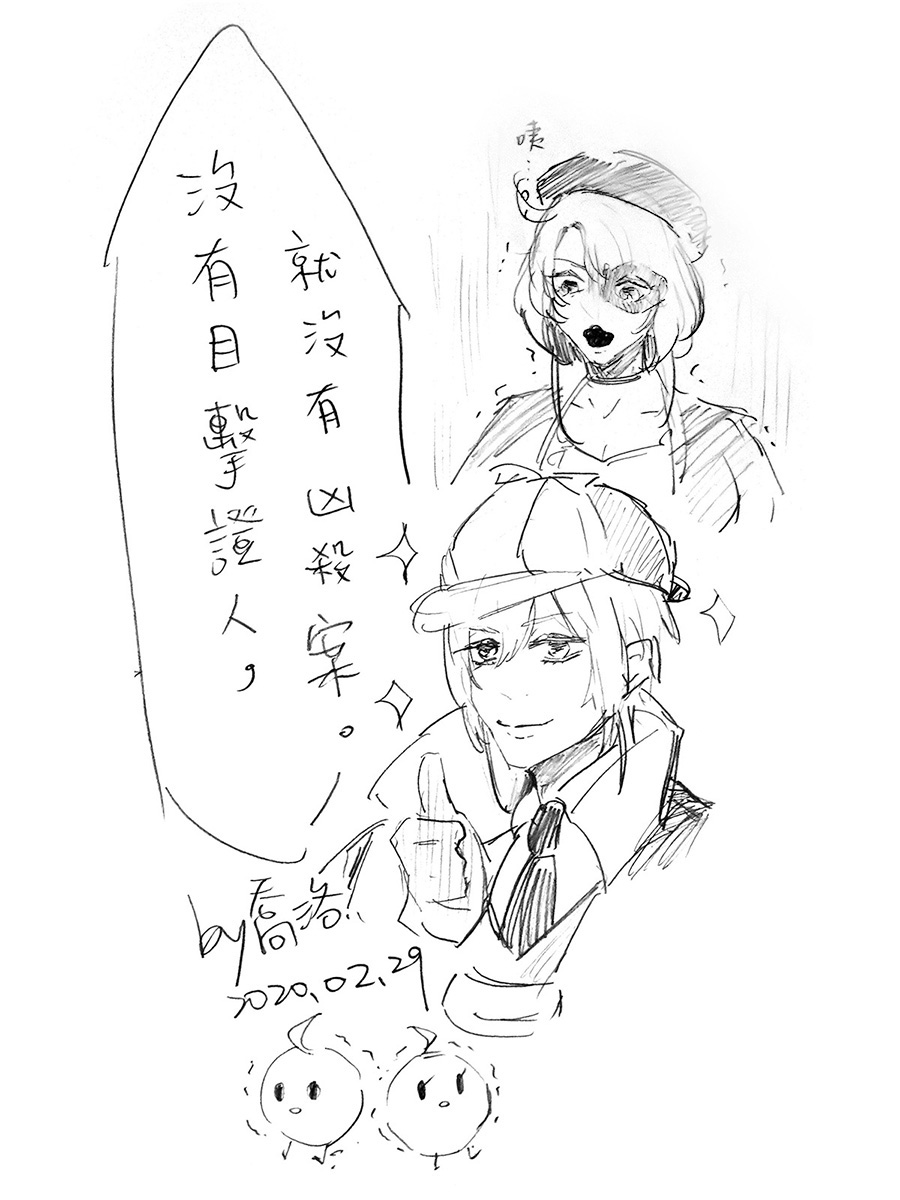 咦…
沒有目擊證人，
就沒有凶殺案。
by喬洛
2020.02.29